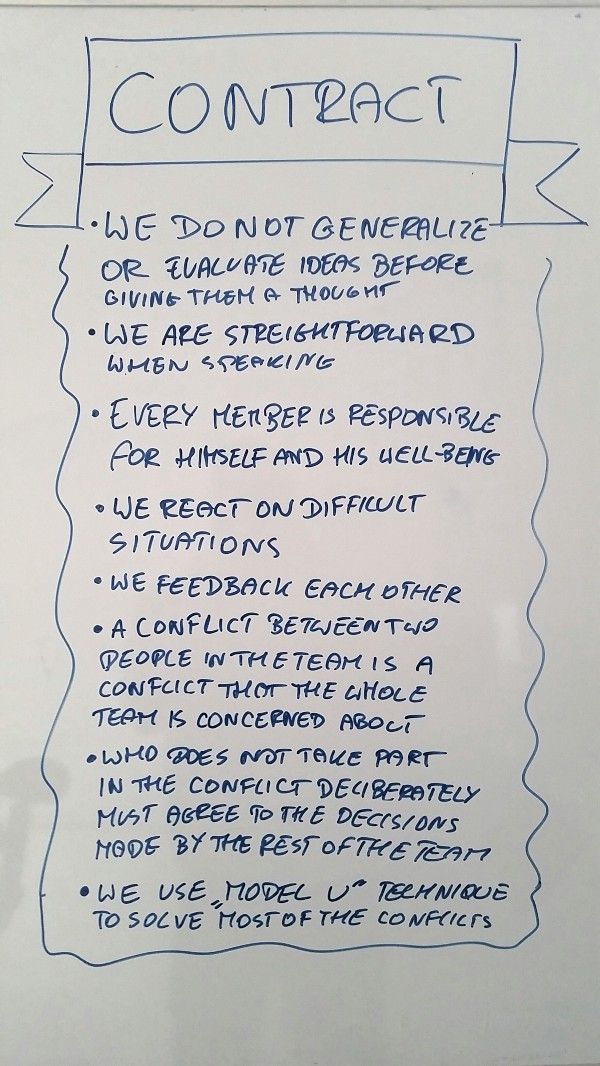 CONTRACT
• WE DO NOT GENERALIZE
OR EVALUATE IDEAS BEFORE
GIVING THEM A THOUGHT
• WE ARE STREIGHTFORWARD
WHEN SPEAKING
• EVERY MEMBER IS RESPONSIBLE
FOR HIMSELF AND HIS WELL-BEING
• WE REACT ON DIFFICULT
SITUATIONS
• WE FEEDBACK EACH OTHER
• A CONFLICT BETWEEN TWO
PEOPLE IN THE TEAM IS A
CONFLICT THAT THE WHOLE
TEAM IS CONCERNED ABOUT
• WHO DOES NOT TAKE PART
IN THE CONFLICT DELIBERATELY
MUST AGREE TO THE DECISIONS
MADE BY THE REST OF THE TEAM
• WE USE „MODEL U” TECHNIQUE
TO SOLVE MOST OF THE CONFLICTS